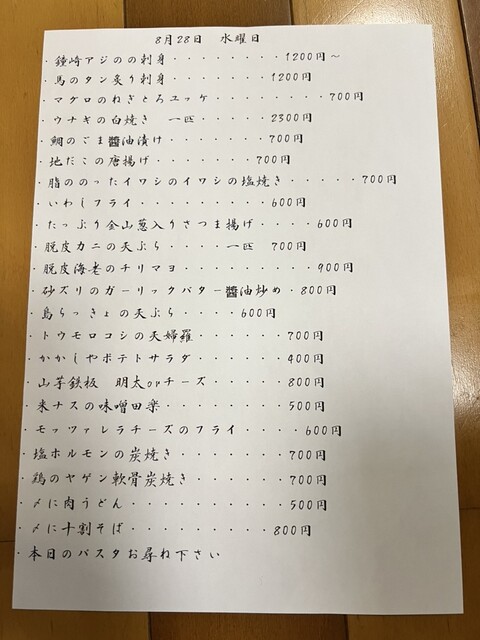 8月28日 水曜日
・鐘崎アジのの刺身・・・・・・・・1200円～
・馬のタン炙り刺身・・・・・・・・1200円
・マグロのねぎとろユッケ・・・・・・・・・700円
・ウナギの白焼き 一匹・・・・・2300円
・鯛のごま醬油漬け・・・・・・・700円
・地だこの唐揚げ・・・・・・・700円
・脂ののったイワシのイワシの塩焼き・・・・・700円
・いわしフライ・・・・・・・・・600円
・たっぷり金山葱入りさつま揚げ・・・・600円
・脱皮カニの天ぷら・・・・一匹 700円
・脱皮海老のチリマヨ・・・・・・・・・900円
・砂ズリのガーリックバター醬油炒め・800円
・島らっきょの天ぷら・・・・600円
・トウモロコシの天婦羅・・・・・・700円
・かかしやポテトサラダ・・・・・・400円
・山芋鉄板 明太orチーズ・・・・・800円
・米ナスの味噌田楽・・・・・・・・500円
・モッツァレラチーズのフライ・・・・600円
・塩ホルモンの炭焼き・・・・・・・700円
・鶏のヤゲン軟骨炭焼き・・・・・・700円
・〆に肉うどん・・・・・・・・・・500円
・〆に十割そば・・・・・・・・・800円
・本日のパスタお尋ね下さい